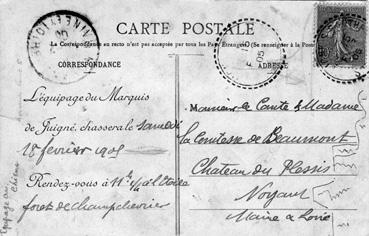 CARTE POSTALE
La Correspondance au recto n'est pas acceptée par tous les Pays Étrangers (Se renseigner à la Poste)
CORRESPONDANCE
ADRESSE
L'équipage du Marquis
de Juigné, chassera le samedi
18 février 1905
Rendez-vous à 11h 1/2 à l'Étoile
foret de Champchevrier
Monsieur le Comte & Madame
La Comtesse de Beaumont
Chateau du Plessis
Noyant
Maine & Loire
05